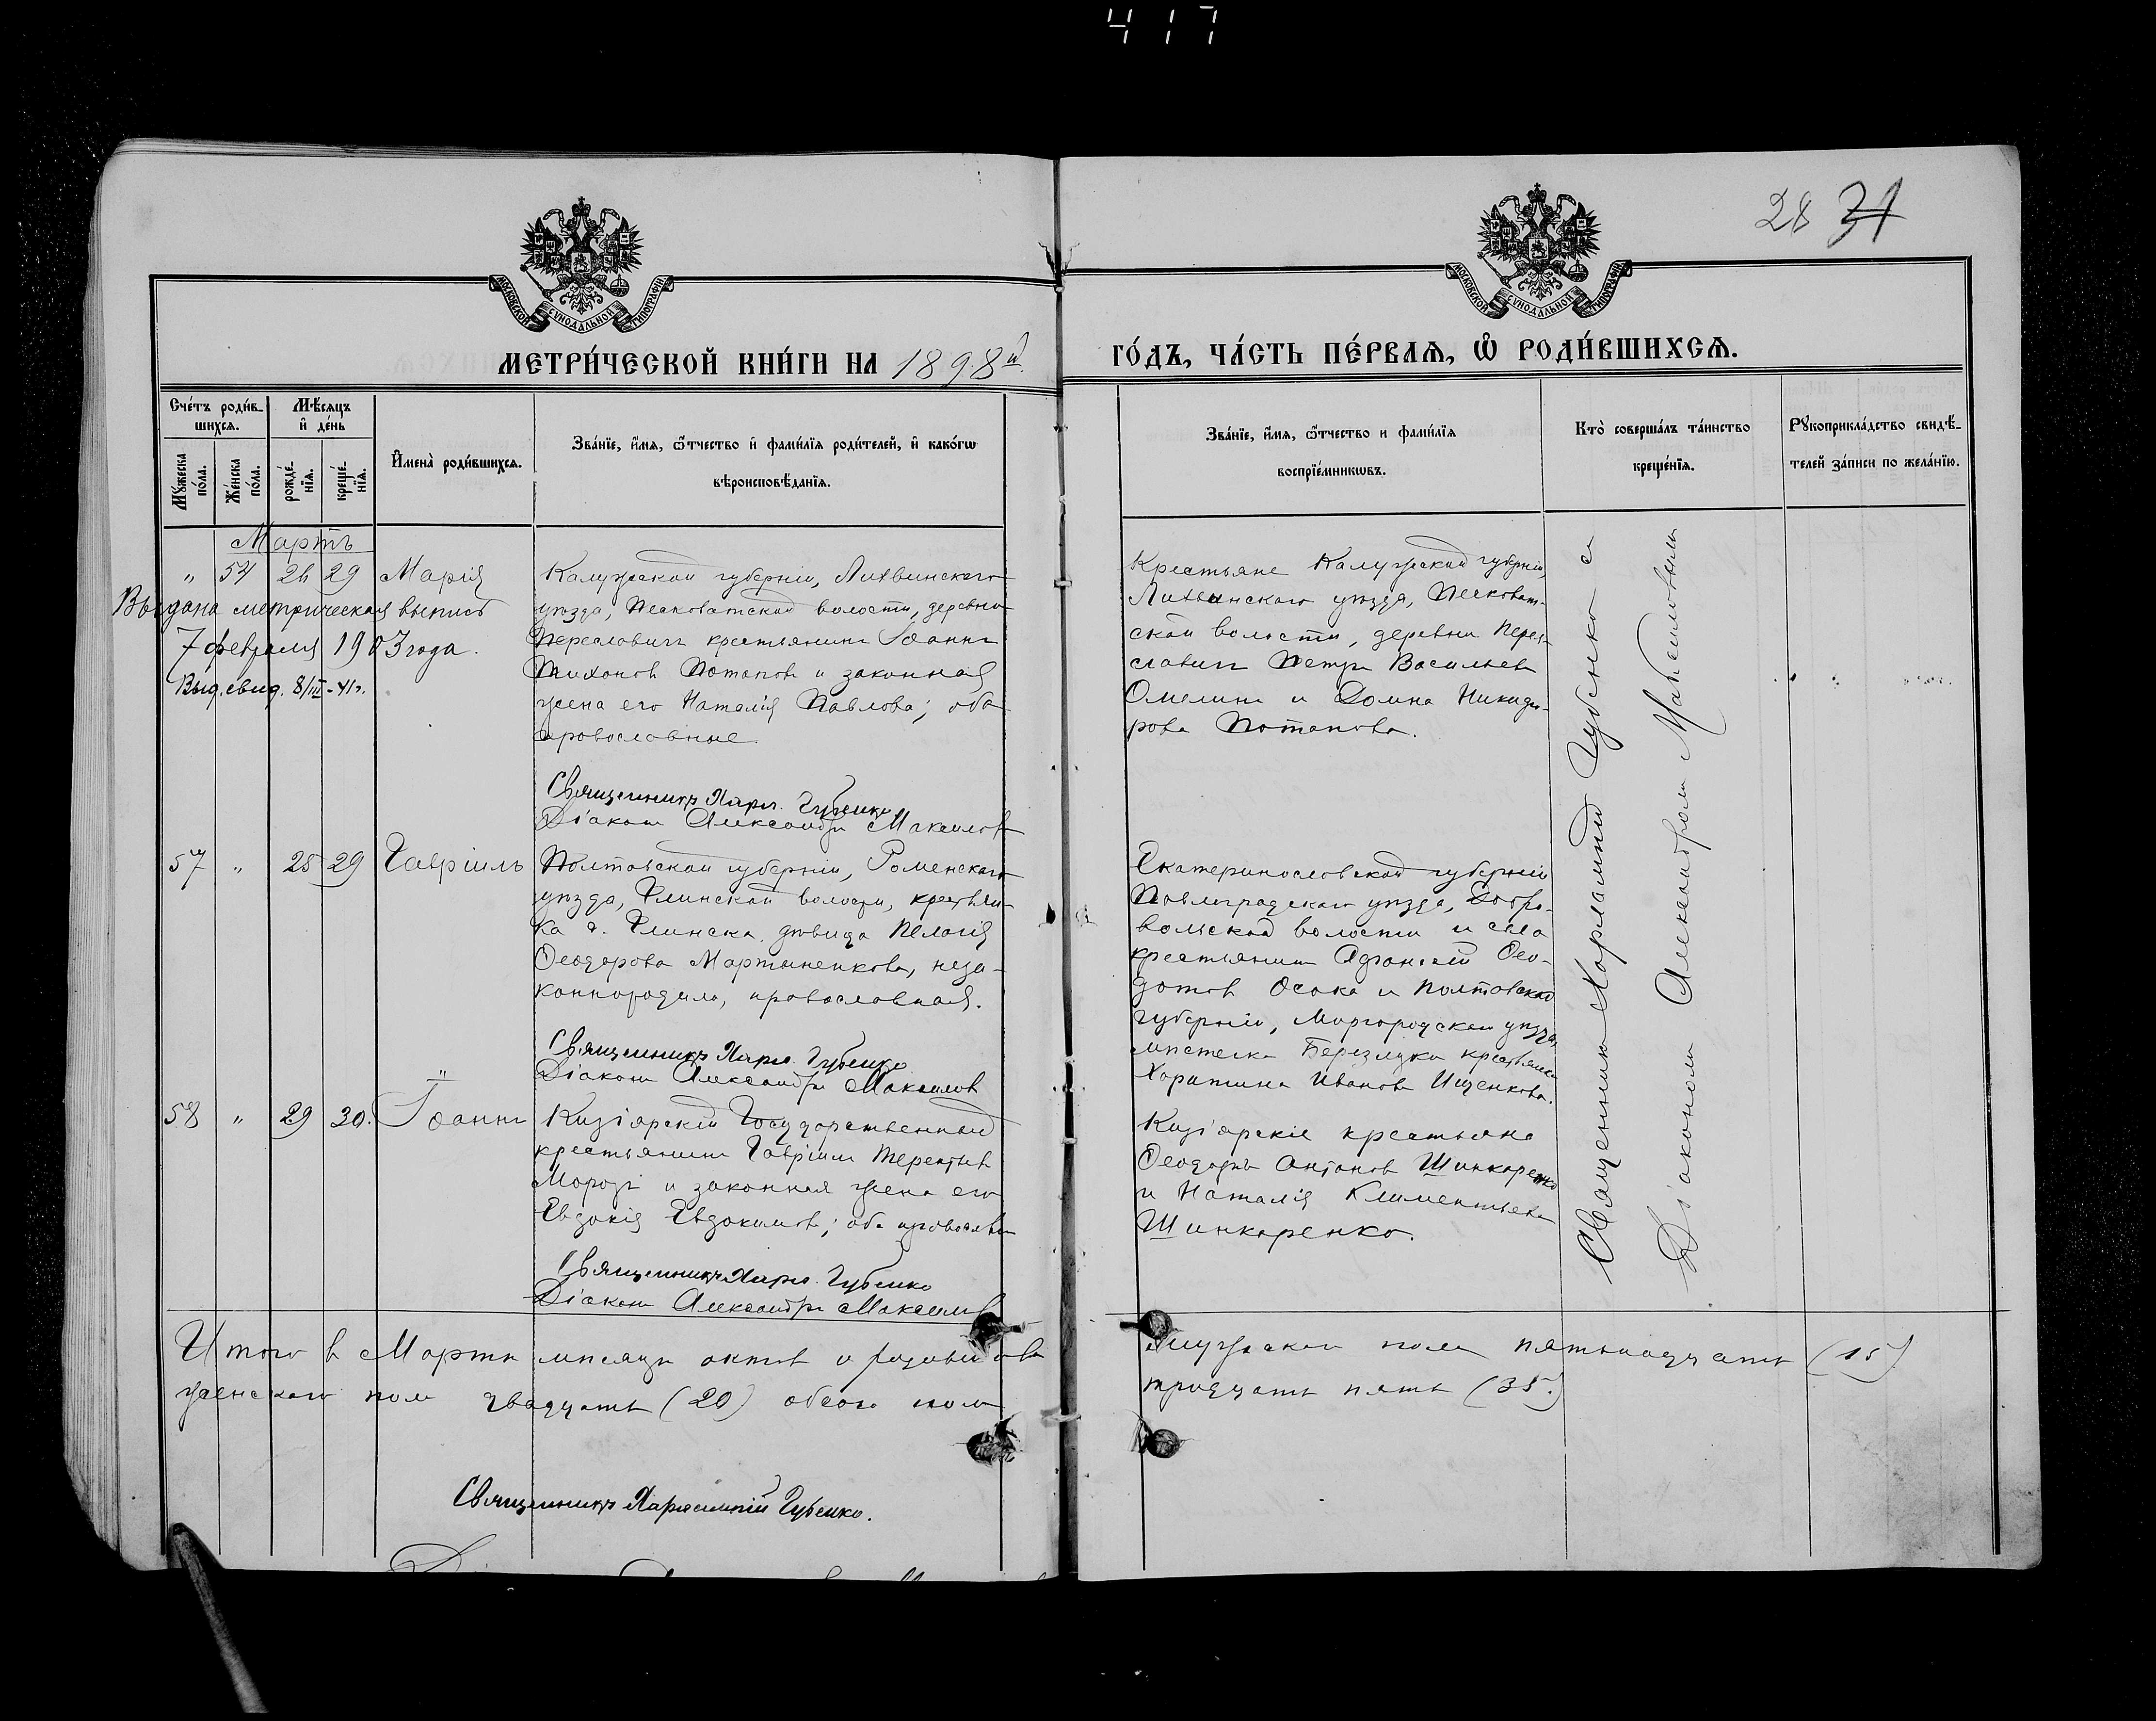 417
28 31
МОСКОВСКОЙ СѴНОДАЛЬНОЙ ТИПОГРАФІИ
МОСКОВСКОЙ СѴНОДАЛЬНОЙ ТИПОГРАФІИ
МЕТРИ́ЧЕСКОЙ КНИ́ГИ НА 1898й
ГО́ДЪ, ЧА́СТЬ ПЕ́РВАѦ, Ѽ РОДИ́ВШИХСѦ.
Сче́тъ роди́в-
шихсѧ.
Мѣ́сѧцъ
и҆ де́нь
Мꙋ́жеска
по́ла.
Же́нска
по́ла.
рожде́-
нїѧ.
креще́-
нїѧ.
И҆мена̀ роди́вшихсѧ.
Зва́нїе, и҆́мѧ, ѻ҆́тчество и҆ фами́лїѧ роди́телей, и҆ како́гѡ
вѣроисповѣ́данїѧ.
Зва́нїе, и҆́мѧ, ѻ҆́тчество и фами́лїѧ
воспрїе́мникѡвъ.
Кто̀ соверша́лъ та́инство
креще́нїѧ.
Рꙋкоприкла́дство свидѣ́-
телей за́писи по жела́нїю.
Мартъ
" 54 26 29 Марія
Выдана метрическая выпись
7 февраля 1903 года.
Выд. свид. 8/III-41г.
Калужской губерніи, Лихвинскаго
уѣзда, Песковатской волости, деревни
Переславичъ крестьянинъ Іоаннъ
Тихоновъ Потаповъ и законная
жена его Наталія Павлова; оба
православные.
Священникъ Харл. Губенко
Діаконъ Александръ Максимовъ
Крестьяне Калужской губерніи,
Лихвинскаго уѣзда, Песковат-
ской волости, деревни Пере-
славичъ Петръ Васильевъ
Омелинъ и Домна Никифо-
рова Потапова.
57 " 25 29 Гавріилъ
Полтавской губерніи, Роменскаго
уѣзда, Глинской волости, крестьян-
ка с. Глинска, дѣвица Пелагія
Ѳеодорова Мартыненкова, неза-
коннородило, православная.
Священникъ Харл. Губенко
Діаконъ Александръ Максимовъ
Екатеринославской губерніи
Павлоградскаго уѣзда, Добро-
вольской волости и села
крестьянинъ Ѳео-
дотовъ Осока и Полтавской
губерніи, Миргородскаго уѣзда,
мѣстечка Березлуки крестьянка
Харитина Иванова Ищенкова.
58 " 29 30. Іоаннъ
Кизіярскій Государственный
крестьянинъ Гавріилъ Терентьевъ
Морозъ и законная жена его
Евдокія Евдокимова; оба православн.
Священникъ Харл. Губенко
Діаконъ Александръ Максимовъ
Кизіярскіе крестьяне
Ѳеодоръ Антоновъ Шинкаренко
и Наталія Климентьева
Шинкаренко.
Священникъ Харлампій Губенко съ
Діакономъ Александромъ Максимовымъ
Итого въ Мартѣ мѣсяцѣ актовъ о родившихся
мужскаго пола пятьнадцать (15)
женскаго пола двадцать (20) обоего пола
тридцать пять (35.)
Священникъ Харлампій Губенко.